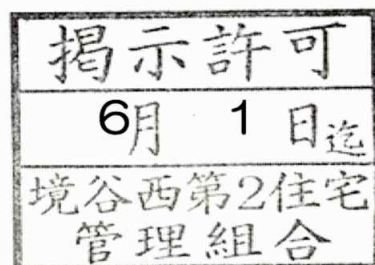 掲示許可
6月 1 日迄
境谷西第2住宅
管理組合